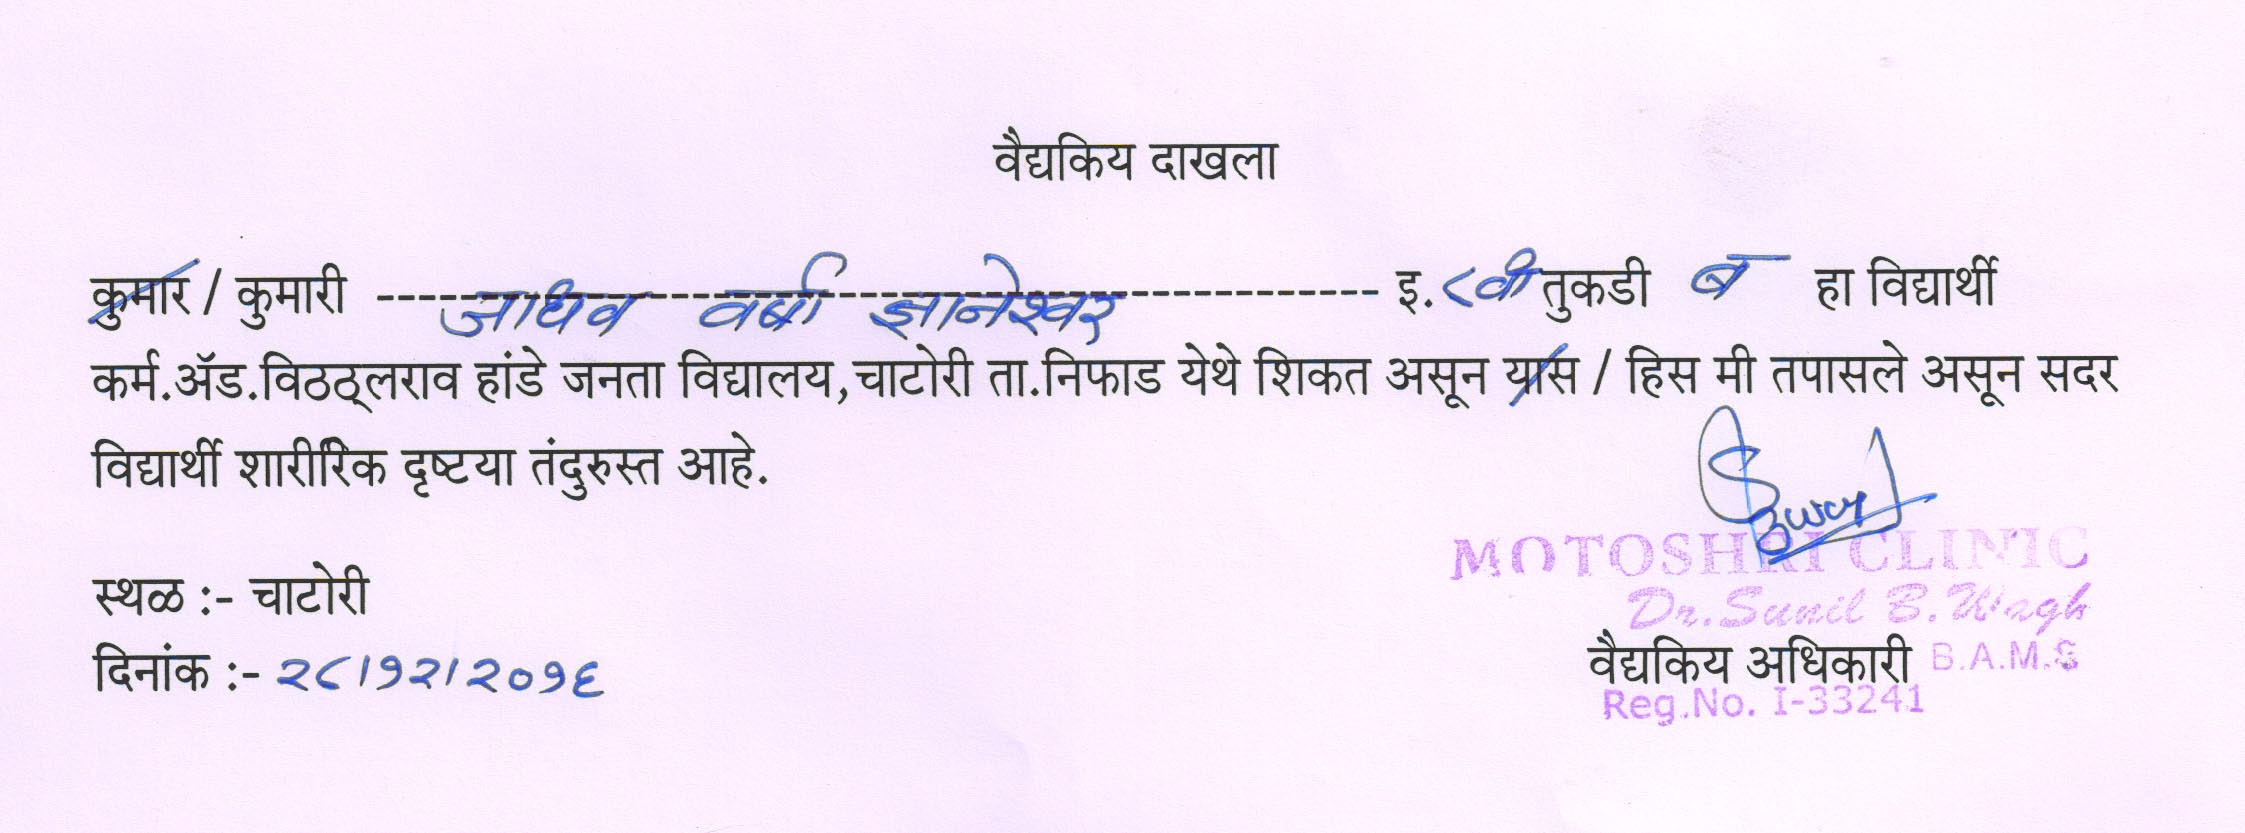 वैद्यकिय दाखला
कुमार / कुमारी ------------------------------------------------ जाधव वर्षा ज्ञानेश्वर इ. ८वी तुकडी ब हा विद्यार्थी
कर्म.ॲड.विठठ्लराव हांडे जनता विद्यालय,चाटोरी ता.निफाड येथे शिकत असून यास / हिस मी तपासले असून सदर
विद्यार्थी शारीरिक दृष्टया तंदुरुस्त आहे.
MOTOSHRI CLINIC
स्थळ :- चाटोरी
Dr.Sunil B.Wagh
दिनांक :- २८/१२/२०१६
वैद्यकिय अधिकारी B.A.M.S
Reg.No. I-33241